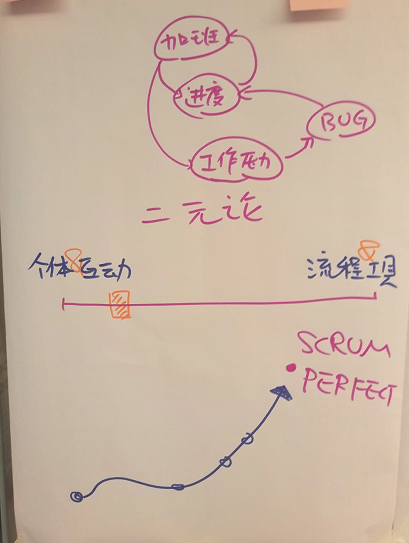 加班
进度
BUG
工作压力
二元论
个体&互动
流程&工具
SCRUM
PERFECT